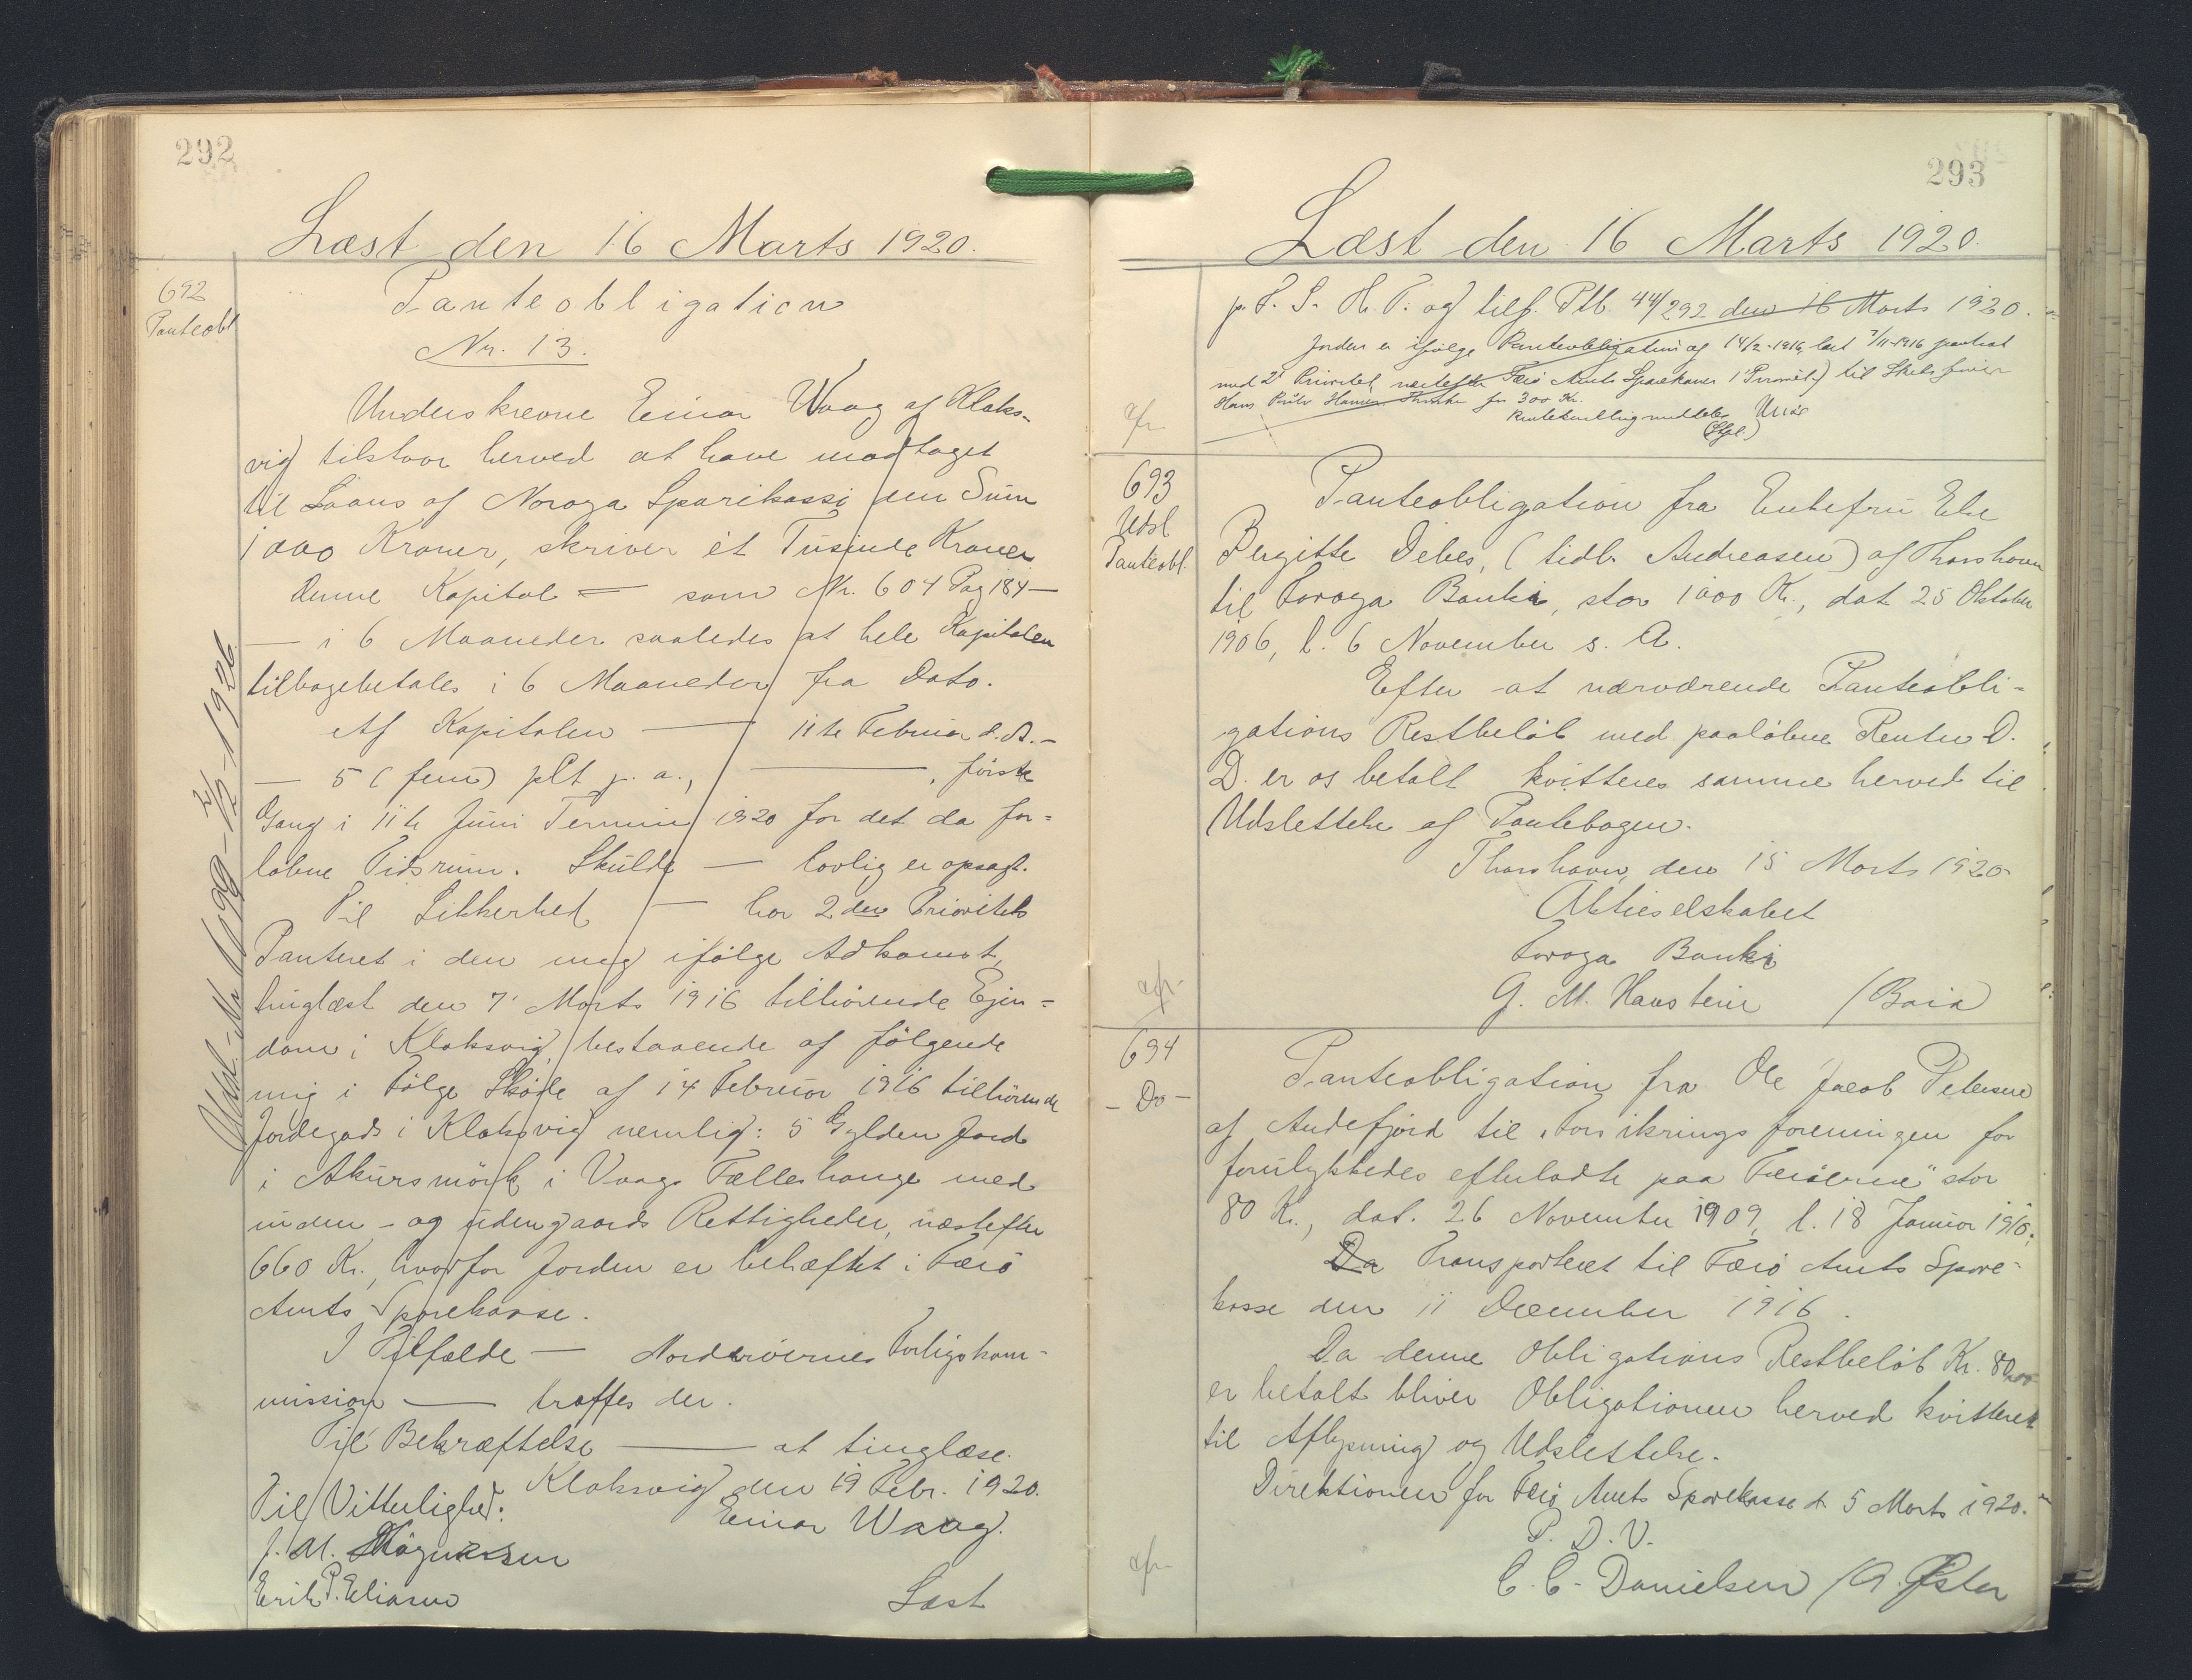 292
Læst den 16 Marts 1920.
692
Panteobl
Panteobligation
Nr. 13.
Underskrevne Einar Waag af Klaks-
vig tilstaar herved at have modtaget
til Laans af Noroya Sparikassi den Sum
1000 Kroner, skriver et Tusinde Kroner
Denne Kapital — som Nr. 604 Pag 184 —
— i 6 Maaneder saaledes at hele Kapitalen
tilbagebetales i 6 Maaneder fra Dato.
Af Kapitalen — 11te Februar d. A. —
— 5 (fem) pCt p. a., — , første
Gang i 11te Juni Termin 1920 for det da for-
løbne Tidsrum. Skulde — lovlig er opsagt.
Til Sikkerhed — har 2den Prioritets
Panteret i den mig ifølge Adkomst,
tinglæst den 7' Marts 1916 tilhørende Ejen-
dom i Klaksvig, bestaaende af følgende
mig i Følge Skøde af 14 Februar 1916 tilhørende
Jordegods i Klaksvig nemlig: 5 Gylden Jord
i Akursmörk i Vaags Fælleshauge med
inden- og udengaards Rettigheder, næstefter
660 Kr., hvorfor Jorden er behæftet i Færø
Amts Sparekasse.
I Tilfælde — Norderøernes Forligskom-
mission — træffes der.
Til Bekræftelse — at tinglæse.
Klaksvig den 19 Febr. 1920.
Til Vitterlighed: Einar Waag.
J. M. Høgnesen
Erik P. Eliasen
Læst
293
Læst den 16 Marts 1920.
p. F. S. H. T. og tilf. Ptb. 44/292 den 16 Marts 1920.
Jorden er ifølge Panteobligation af 14/2-1916, læst 7/11-1916 pantsat
med 2' Prioritet næstefter Færø Amts Sparekasse 1' Prioritet) til
Hans for 300 Kr.
meddeles
693
Udsl
Panteobl.
Panteobligation fra Enkefru Else
Bergitte Debes, (tidl. Andreasen) af Thorshavn
til Föroya Banki, stor 1000 Kr., dat 25 Oktober
1906, l. 6 November s. A.
Efter at nærværende Panteobli-
gations Restbeløb med paaløbne Renter D.
D. er os betalt kvitteres samme herved til
Udslettelse af Pantebogen.
Thorshavn, den 15 Marts 1920
Aktieselskabet
Föroya Banki
G. M. Haustein /
694
- Do -
Panteobligation fra Ole Jacob Petersen
af Andefjord til „Forsikringsforeningen for
forulykkedes efterladte paa Færøerne" stor
80 Kr., dat. 26 November 1909, l. 18 Januar 1910.
Da Transporteret til Færø Amts Spare-
kasse den 11 December 1916.
Da denne Obligations Restbeløb Kr. 80,00
er betalt bliver Obligationen herved kvitteret
til Aflysning og Udslettelse.
Direktionen for Færø Amts Sparekasse d. 5 Marts 1920.
P. D. V.
C. C. Danielsen /